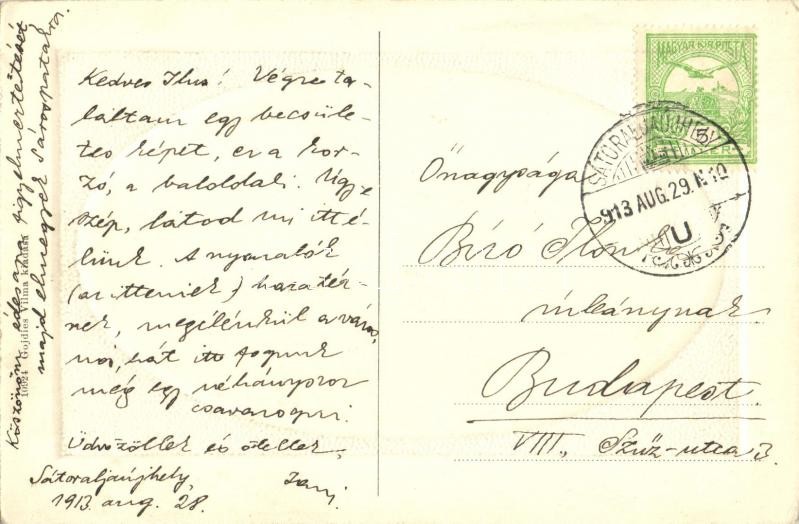 Kedves Ilus! Végre ta-
láltam egy becsüle-
tes képet, ez a kor-
zó, a baloldali. Ugye
szép, látod mi itt é-
lünk. A nyaralók
(az itteniek) hazatér-
nek, megélénkül a város,
no, hát itt fogunk
még egy néhányszor
csavarogni.
Üdvözöllek és ölellek,
Sátoraljaújhely,
1913. aug. 28.
Köszönöm édesanya figyelmeztetését
majd elmegyek Sárospatakra.
Gojdics Vilma kiadása
MAGYAR KIR. POSTA
SÁTORALJAÚJHELY
913 AUG. 29. N 10
U
Önagysága
Bíró Ilon
úrleánynak
Budapest.
VIII., Szűz-utca 3.